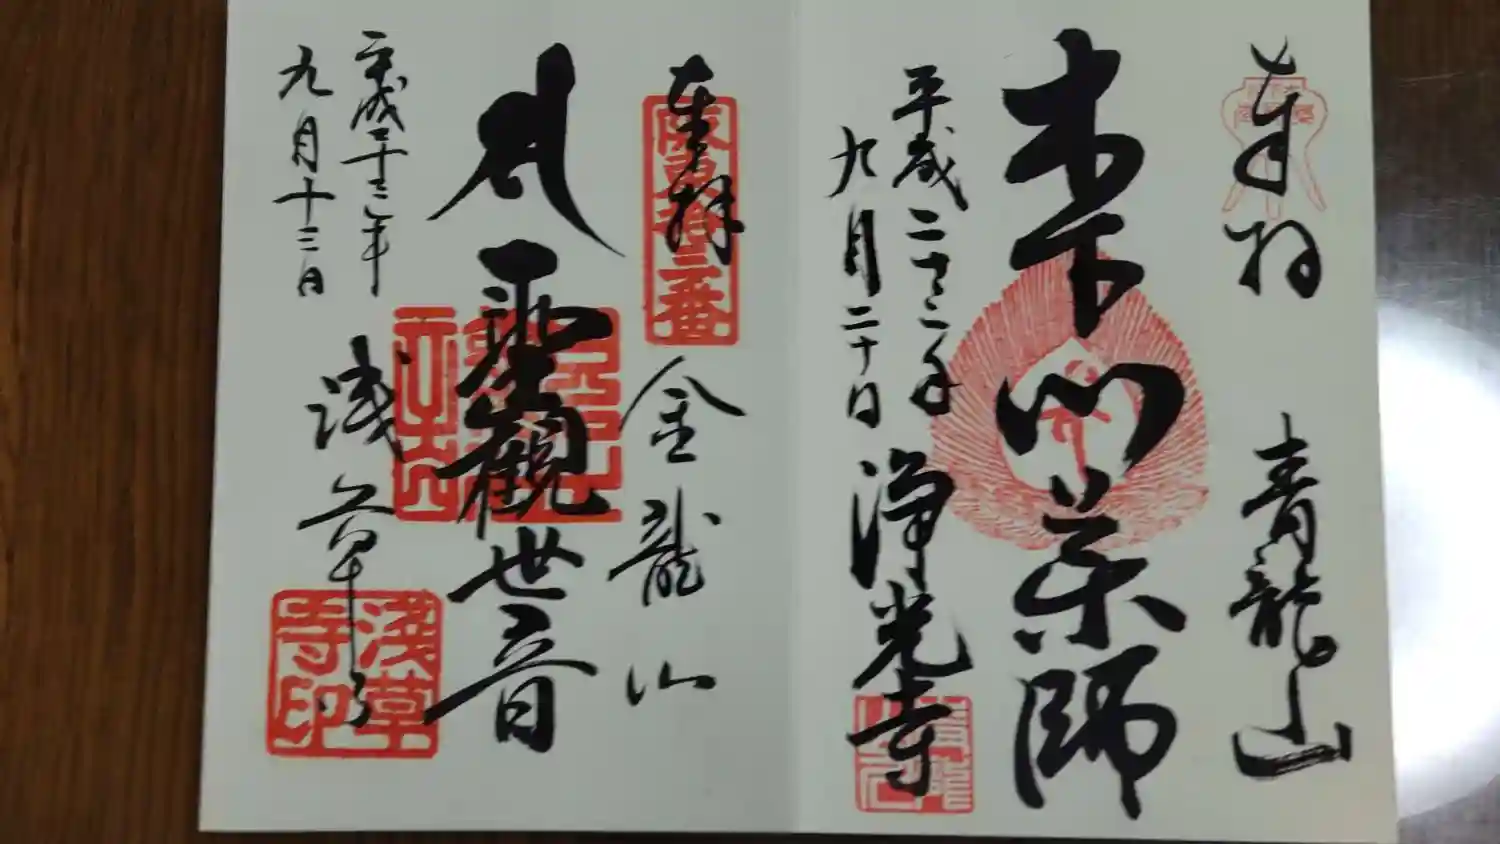 奉拝
青龍山
木下薬師
平成二十三年
九月二十日
浄光寺
奉拝
坂東拾三番
金龍山
聖觀世音
平成二十三年
九月十三日
浅草寺
浅草寺印